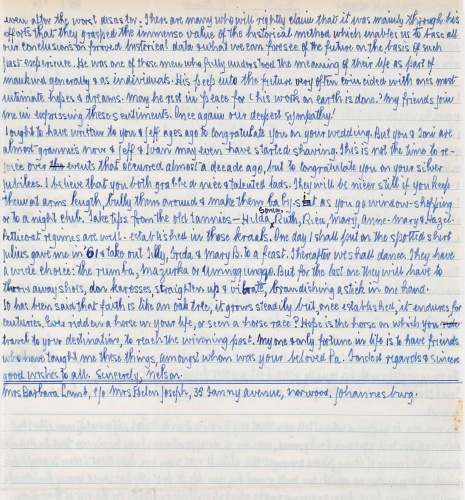 even after the worst disaster. There are many who will rightly claim that it was mainly through his
efforts that they grasped the immense value of the historical method which enables us to base all
our conclusions on proved historical data & what we can foresee of the future on the basis of such
past experience. He was one of those men who fully understood the meaning of their life as part of
mankind generally & as individuals. His peep into the future very often coincided with ones most
intimate hopes & dreams. May he rest in peace for his work on earth is done. My friends join
me in expressing these sentiments. Once again our deepest sympathy!
I ought to have written to you & Jeff ages ago to congratulate you on your wedding. But you & Toni are
almost grannies now & Jeff & Ivan may even have started shaving. This is not the time to re-
joice over the events that occurred almost a decade ago, but to congratulate you on your silver
jubilees. I believe that you both grabbed nice & talented lads. They will be nicer still if you keep
them at arms length, bully them around & make them baby sit as you go window-shopping
or to a night club. Take tips from the old tannies - Hilda, Ruth, Rica, Mary, Anne-Mary & Hazel.
Petticoat regimes are well-established in those kraals. One day I shall put on the spotted shirt
Julius gave me in '61 & take out Tilly, Freda & Mary B. to a feast. Thereafter we shall dance. They have
a wide choice: the rumba, mazurka or umngqungqo. But for the last one they will have to
throw away shoes, don karosses, straighten up & vibrate, brandishing a stick in one hand.
It has been said that faith is like an oak tree, it grows steadily but, once established, it endures for
centuries. Ever ridden a horse in your life, or seen a horse race? Hope is the horse on which you
travel to your destination, to reach the winning post. My one & only fortune in life is to have friends
who have taught me these things, amongst whom was your beloved Pa. Fondest regards & sincere
good wishes to all. Sincerely, Nelson.
Mrs Barbara Lamb, c/o Mrs Helen Joseph, 35 Fanny Avenue, Norwood, Johannesburg.